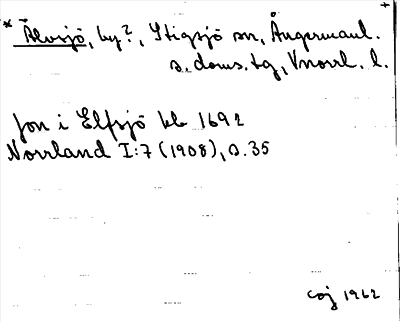 * Älvsjö, by?, Stigsjö sn, Ångermanl. +
s. doms. tg, Vnorrl. l.
Jon i Elfsjö kb 1692
Norrland I:7 (1908), s. 35
CGJ 1962